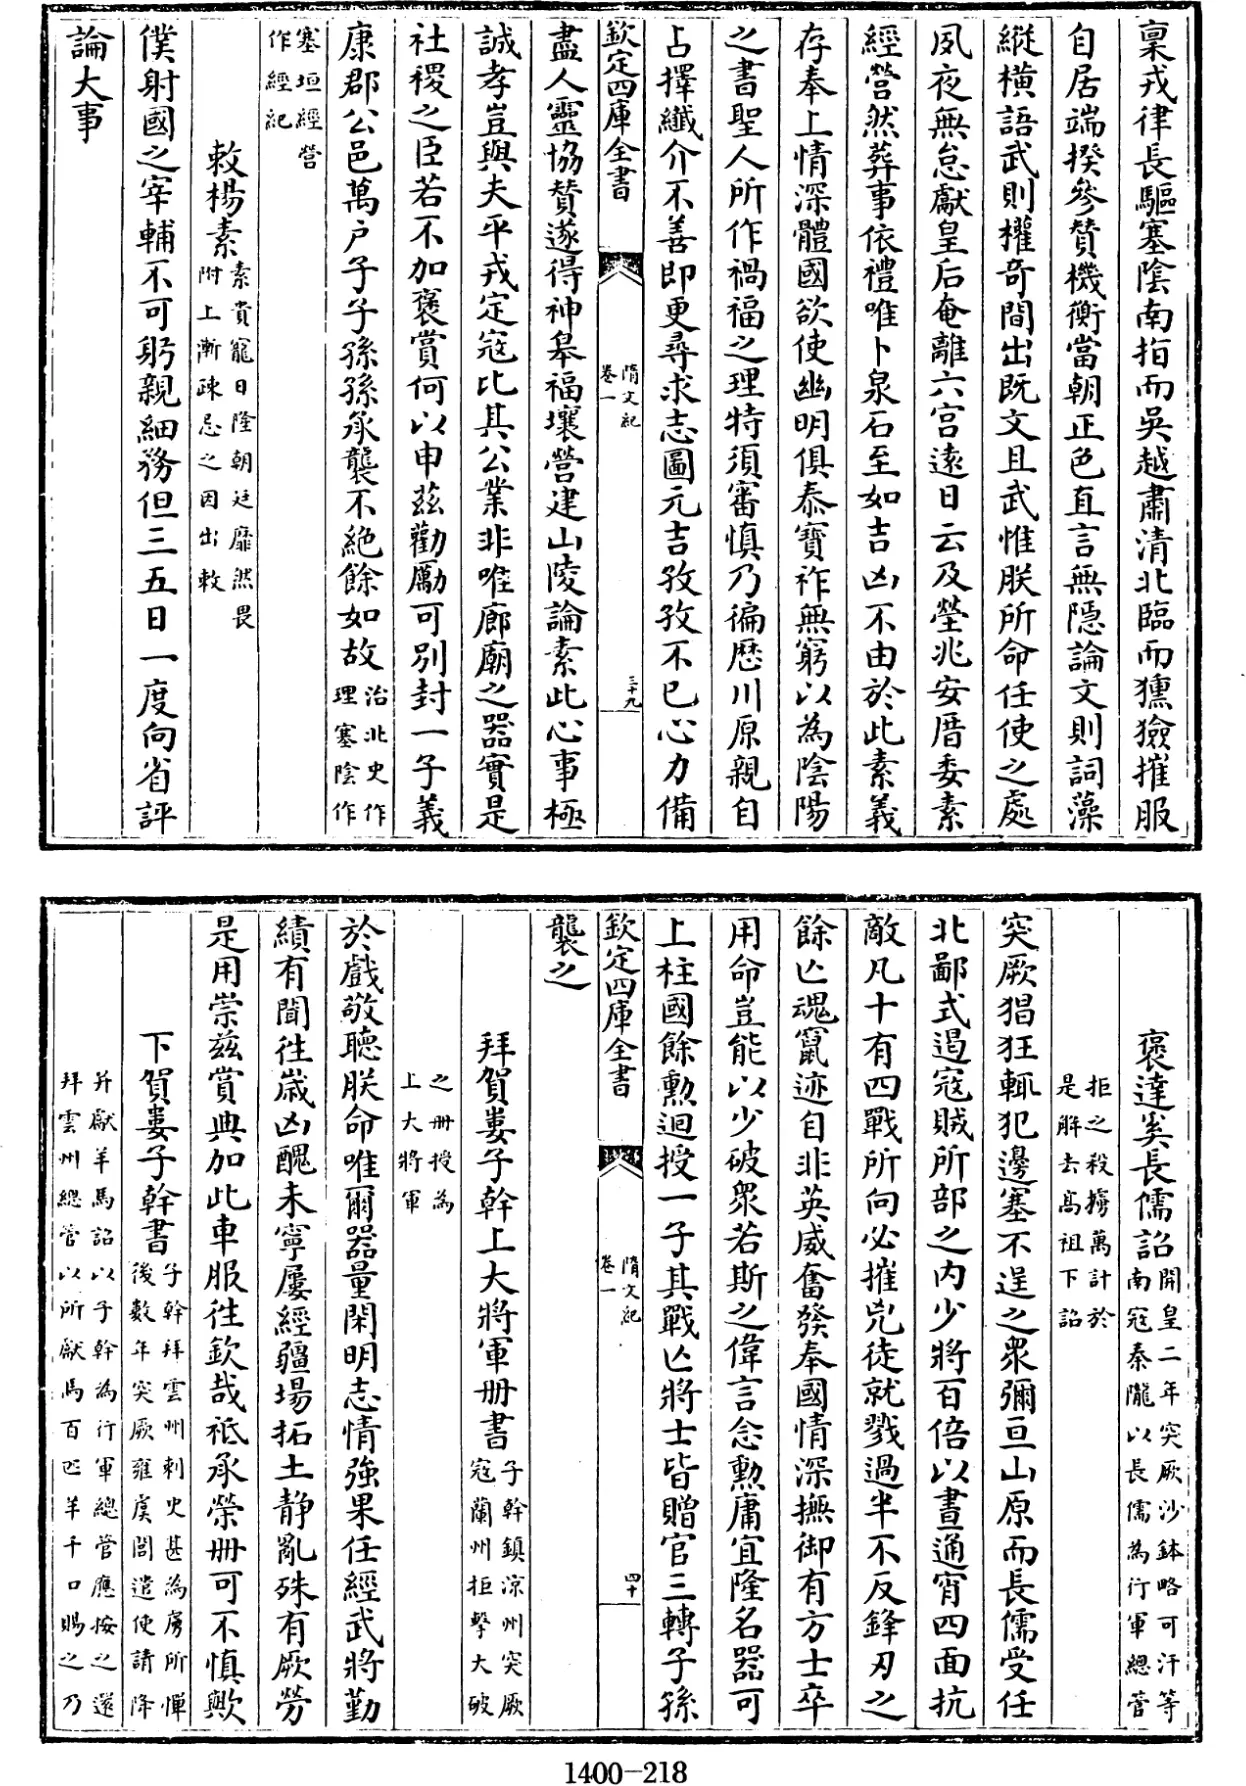 稟戎律長驅塞陰南指而吳越肅清北臨而獯獫摧服
自居端揆參贊機衡當朝正色直言無隱論文則詞藻
縱橫語武則權奇間出既文且武惟朕所命任使之處
夙夜無怠獻皇后奄離六宮遠日云及塋兆安厝委素
經營然葬事依禮唯卜泉石至如吉凶不由於此素義
存奉上情深體國欲使幽明俱泰寶祚無窮以為陰陽
之書聖人所作禍福之理特須審慎乃徧歷川原親自
占擇纖介不善即更尋求志圖元吉孜孜不已心力備
欽定四庫全書 隋文紀 卷一 三十九
盡人靈協贊遂得神皋福壤營建山陵論素此心事極
誠孝豈與夫平戎定寇比其公業非唯廊廟之器實是
社稷之臣若不加褒賞何以申茲勸勵可別封一子義
康郡公邑萬戶子子孫孫承襲不絕餘如故治北史作理塞陰作
塞垣經營作經紀
敕楊素素貴寵日隆朝廷靡然畏附上漸疎忌之因出敕
僕射國之宰輔不可躬親細務但三五日一度向省評
論大事
褒達奚長儒詔開皇二年突厥沙鉢略可汗等南寇秦隴以長儒為行軍總管
拒之殺擄萬計於是解去高祖下詔
突厥猖狂輒犯邊塞不逞之衆彌亘山原而長儒受任
北鄙式遏寇賊所部之内少將百倍以晝通宵四面抗
敵凡十有四戰所向必摧兇徒就戮過半不反鋒刃之
餘亡魂竄迹自非英威奮發奉國情深撫御有方士卒
用命豈能以少破衆若斯之偉言念勲庸宜隆名器可
上柱國餘勲迴授一子其戰亡將士皆贈官三轉子孫
欽定四庫全書 隋文紀 卷一 四十
襲之
拜賀婁子幹上大將軍册書子幹鎮涼州突厥寇蘭州拒擊大破
之册授為上大將軍
於戲敬聽朕命唯爾器量閑明志情強果任經武將勤
績有聞徃歲凶醜未寧屢經疆場拓土静亂殊有厥勞
是用崇茲賞典加此車服徃欽哉祗承榮册可不慎歟
下賀婁子幹書子幹拜雲州刺史甚為虜所憚後數年突厥雍虞閭遣使請降
并獻羊馬詔以子幹為行軍總管應接之還拜雲州總管以所獻馬百匹羊千口賜之乃
1400-218